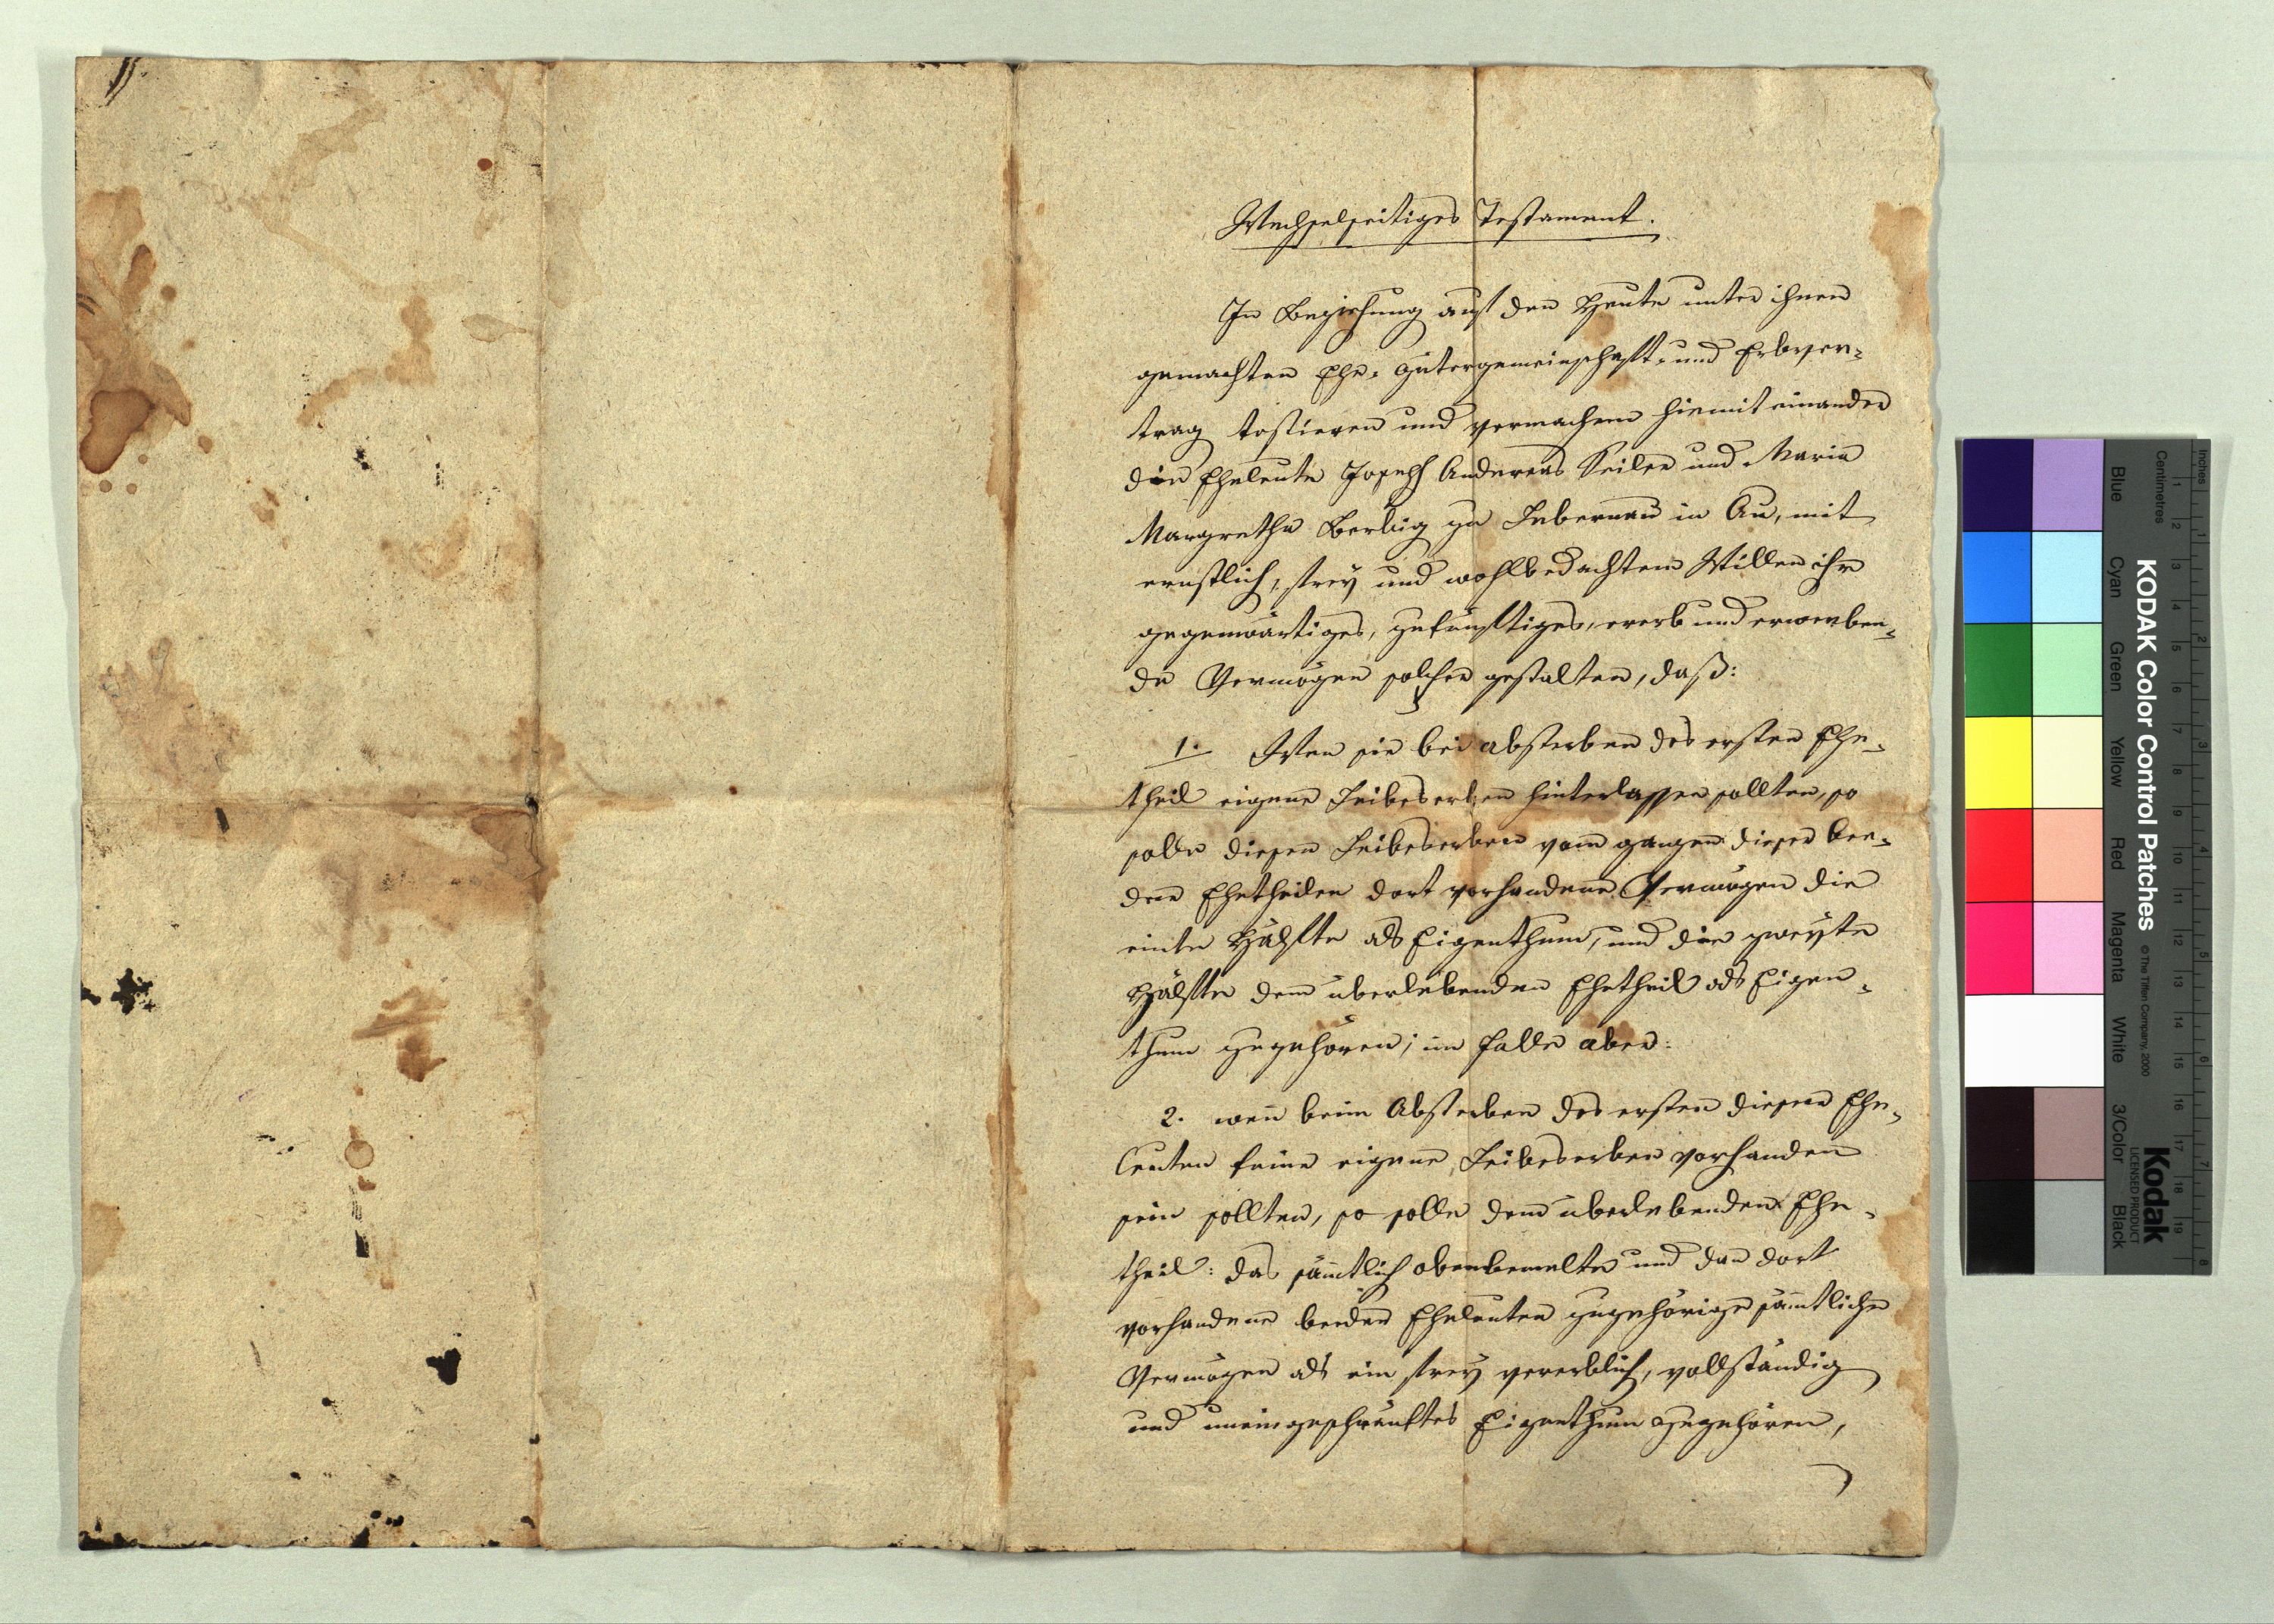 Wechselseitiges Testament.
In Beziehung auf den Heute unter ihnen
gemachten Ehe- Gütergemeinschaft- und Erbver-
trag testieren und vermachen hiemit einander
die Eheleute Joseph Andereas Seiler und Maria
Margretha Berbig zu Lebernau in Au, mit
ernstlich, freÿ und wohlbedachtem Willen ihr
gegenwärtiges, zukünftiges, ererb und erwerben-
de Vermögen solcher gestalten, daß:
1. Wen sie bei absterben des ersten Ehe-
theil eigene Leibeserben hinterlassen sollten, so
solle diesen Leibeserben vom ganzen dieser bee-
den Ehetheilen dort vorhandene Vermögen die
einte Hälfte als Eigenthum, und die zweÿte
Hälfte dem überlebenden Ehetheil als Eigen-
thum zugehören; im falle aber:
2. wen̄ beim Absterben des ersten diesen Ehe-
leuten keine eigene Leibeserben vorhanden
sein sollten, so solle dem überlebenden Ehe-
theil: das sämtlich obenbemelte und dan dort
vorhandene beeden Eheleuten zugehörige sämtliche
Vermögen als ein freÿ vererblich, vollständig
und uneingeschränktes Eigenthum zugehören,
KODAK Color Control Patches
© The Tiffen Company, 2000
Kodak
LICENSED PRODUCT
Inches 1 2 3 4 5 6 7 8
Centimetres 1 2 3 4 5 6 7 8 9 10 11 12 13 14 15 16 17 18 19
Blue Cyan Green Yellow Red Magenta White 3/Color Black